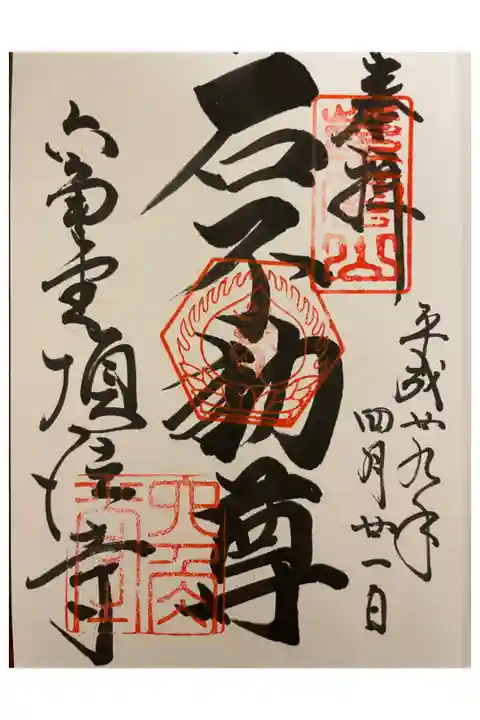 奉拝
紫雲山
平成廿九年
四月廿一日
石不動尊
六角堂 頂法寺